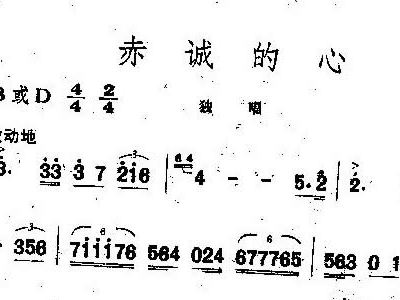 赤诚的心
B或D 4/4 2/4 独唱
动地
3. 33 3 7 216 64 4 - - 5.2 2.
356 7iii76 564 024 677765 563 0 1